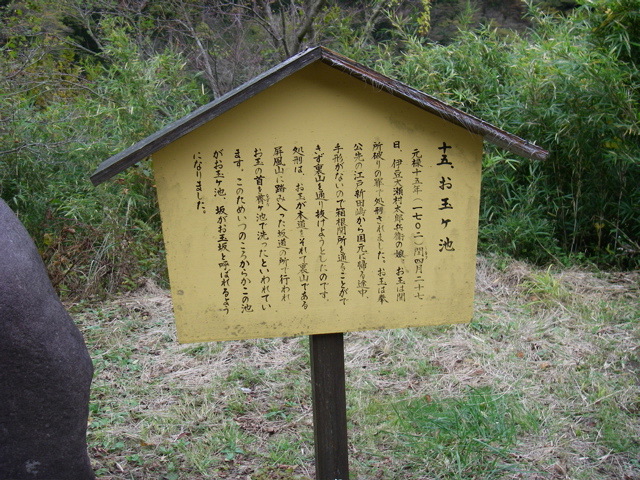 十五、お玉ヶ池
元禄十五年（一七〇二）閏四月二十七
日、伊豆大瀬村太郎兵衛の娘、お玉は関
所破りの罪で処刑されました。お玉は奉
公先の江戸新田嶋から国元に帰る途中、
手形がないので箱根関所を通ることがで
きず裏山を通り抜けようとしたのです。
処刑は、お玉が本道をそれて裏山である
屏風山に踏み入った坂道の所で行われ
お玉の首を ヶ池で洗ったといわれてい
ます。このためいつのころからかこの池
がお玉ヶ池、坂がお玉坂と呼ばれるよう
になりました。